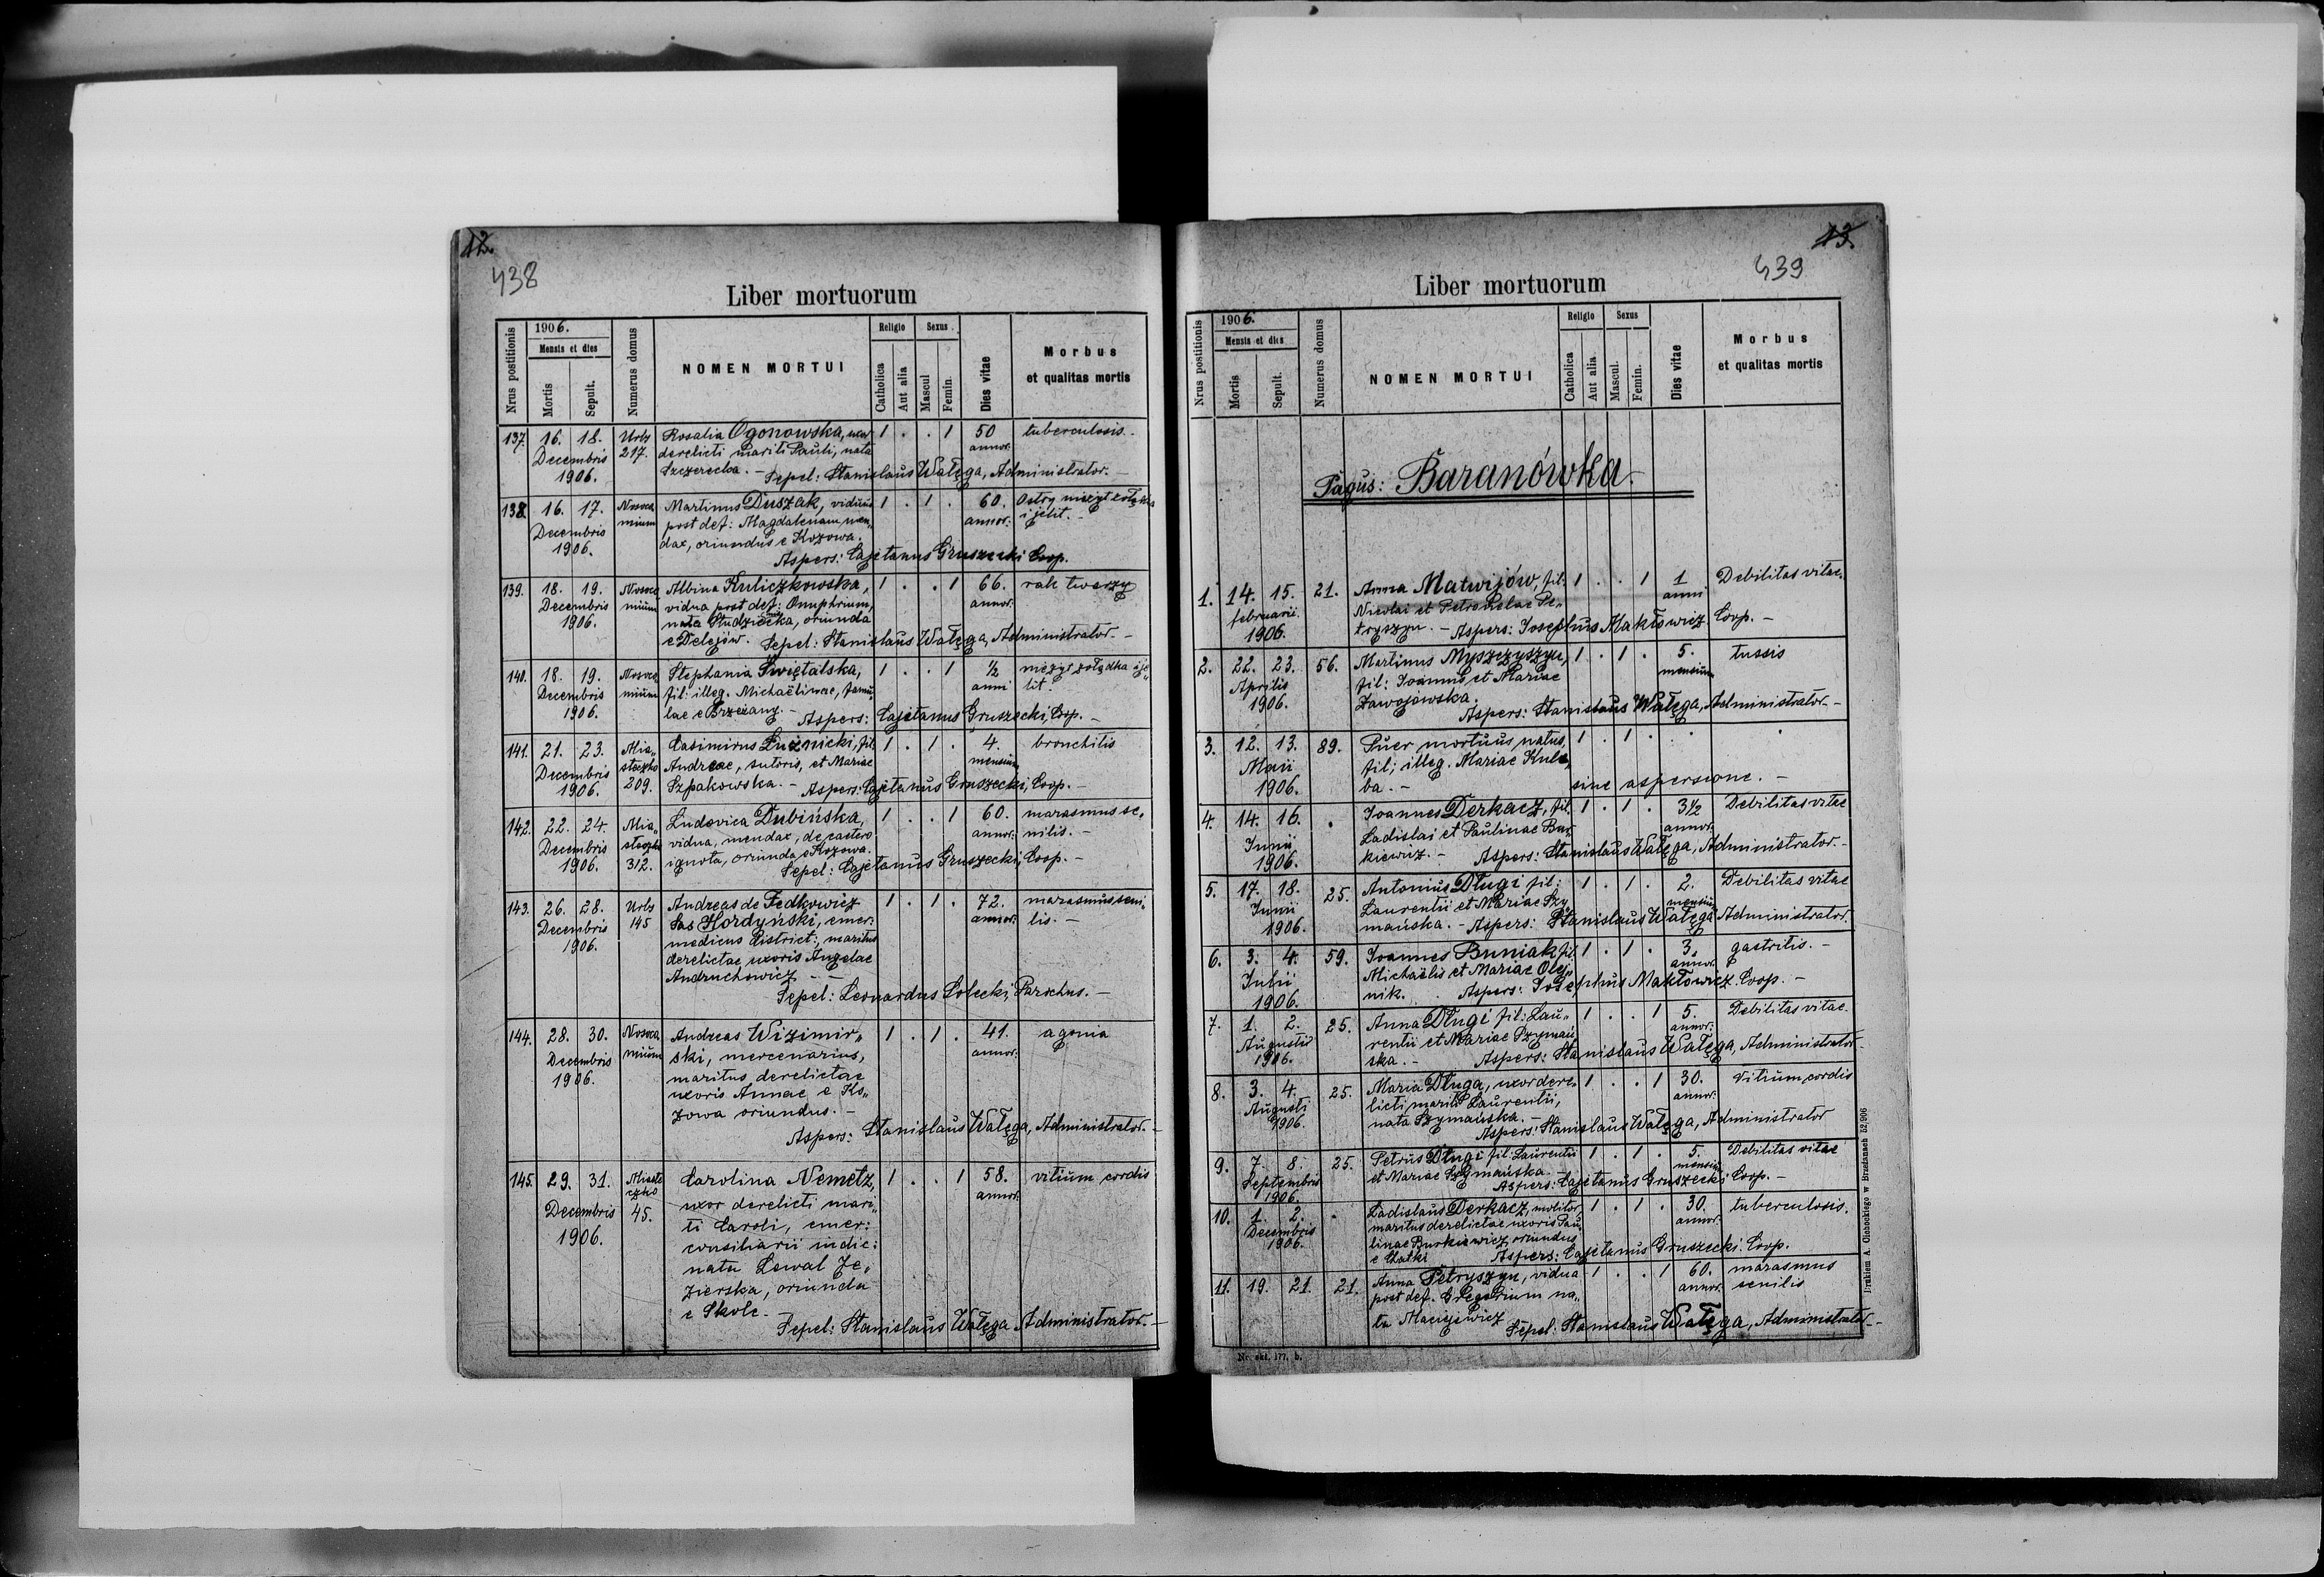 12.
438
Liber mortuorum
Nrus postitionis
1906.
Mensis et dies
Mortis
Sepult.
Numerus domus
NOMEN MORTUI
Religio
Catholica
Aut alia
Sexus
Mascul
Femin.
Dies vitae
Morbus
et qualitas mortis
137. 16. 18. Urbs Rosalia Ogonowska, uxor 1 . . 1 50 tuberculosis.
Decembris 217. derelicti mariti Pauli, nata annor.
1906. Szczerecka. - Sepel: Stanislaus Wałęga, Administrator. -
138. 16. 17. Nosoco Martinus Duszak, viduus 1 . 1 . 60. Ostry nieżyt żołądka
Decembris mium post def: Magdalenam men„ annor. i jelit. -
1906. dax, oriundus e Kozowa.
Aspers: Cajetanus Gruszecki Coop.
139. 18. 19. Nosoco Albina Kuliczkowska, 1 . . 1 66. rak twarzy
Decembris mium vidua post def: Onuphrium, annor.
1906. nata Studziecka, oriunda
e Delejów. Sepel: Stanislaus Wałęga, Administrator. -
140. 18. 19. Nosoco Stephania Swiętalska, 1 . . 1 ½ nieżyt żołądka i je„
Decembris mium fil: illeg. Michaëlinae, famu„ anni lit.
1906. lae e Brzeżany. - Aspers: Cajetanus Gruszecki, Coop. -
141. 21. 23. Mia„ Casimirus Luźnicki, fil: 1 . 1 . 4. bronchitis
Decembris steczko Andreae, sutoris, et Mariae mensium
1906. 209. Szpakowska. - Aspers: Cajetanus Gruszecki, Coop. -
142. 22. 24. Mia„ Ludovica Dubińska, 1 . . 1 60. marasmus se„
Decembris steczko vidua, mendax, de caetero annor. nilis. -
1906. 312. ignota, oriunda e Kozowa.
Sepel: Cajetanus Gruszecki, Coop. -
143. 26. 28. Urbs Andreas de Fedkowicz 1 . 1 . 72. marasmus seni„
Decembris 145 Sas Hordyński, emer: annor. lis. -
1906. medicus district:, maritus
derelictae uxoris Angelae
Andruchowicz. -
Sepel: Leonardus Solecki, Parochus. -
144. 28. 30. Nosoco Andreas Wizimir„ 1 . 1 . 41. agonia
Decembris mium ski, mercenarius, annor.
1906. maritus derelictae
uxoris Annae e Ko„
zowa oriundus. -
Aspers: Stanislaus Wałęga, Administrator. -
145. 29. 31. Miaste Carolina Nemetz, 1 . . 1 58. vitium cordis
Decembris czko uxor derelicti mari„ annor.
1906. 45. ti Caroli, emer:
consiliarii indic:
nata Lewal Je„
zierska, oriunda
e Skole. -
Sepel: Stanislaus Wałęga Administrator. -
13.
439
Liber mortuorum
Nrus postitionis
1906.
Mensis et dies
Mortis
Sepult.
Numerus domus
NOMEN MORTUI
Religio
Catholica
Aut alia
Sexus
Mascul.
Femin.
Dies vitae
Morbus
et qualitas mortis
Pagus: Baranówka.
1. 14. 15. 21. Anna Matwijów, fil: 1 . . 1 1 Debilitas vitae.
februarii Nicolai et Petronelae Pe„ anni
1906. tryszyn. - Aspers: Josephus Makłowicz Coop. -
2. 22. 23. 56. Martinus Myszczyszyn, 1 . 1 . 5. tussis
Aprilis fil: Joannis et Mariae mensium
1906. Zawojowska.
Aspers: Stanislaus Wałęga, Administrator. -
3. 12. 13. 89. Puer mortuus natus, 1 . 1 . . .
Maii fil: illeg. Mariae Kule„
1906. ba. - sine aspersione. -
4. 14. 16. . Joannes Derkacz, fil. 1 . 1 . 3½ Debilitas vitae
Junii Ladislai et Paulinae Bur„ annor.
1906. kiewicz. - Aspers: Stanislaus Wałęga, Administrator. -
5. 17. 18. 25. Antonius Długi fil: 1 . 1 . 2. Debilitas vitae
Junii Laurentii et Mariae Szy„ mensium
1906. mańska. - Aspers: Stanislaus Wałęga Administrator.
6. 3. 4. 59. Joannes Buniak fil. 1 . 1 . 3. gastritis. -
Julii Michaëlis et Mariae Olej„ annor.
1906. nik. Aspers: Josephus Makłowicz Coop. -
7. 1. 2. 25. Anna Długi fil: Lau„ 1 . . 1 5. Debilitas vitae.
Augusti rentii et Mariae Szymań„ annor.
1906. ska. - Aspers: Stanislaus Wałęga, Administrator. -
8. 3. 4. 25. Maria Długa, uxor dere„ 1 . . 1 30. vitium cordis
Augusti licti mariti Laurentii, annor.
1906. nata Szymańska. -
Aspers: Stanislaus Wałęga, Administrator
9. 7. 8. 25. Petrus Długi fil: Laurentii 1 . 1 . 5. Debilitas vitae
Septembris et Mariae Szymańska. mensium
1906. Aspers: Cajetanus Gruszecki Coop. -
10. 1. 2. . Ladislaus Derkacz, molitor, 1 . 1 . 30. tuberculosis.
Decembris maritus derelictae uxoris Pau„ annor.
1906. linae Burkiewicz, oriundus
e Chatki Aspers: Cajetanus Gruszecki Coop.
11. 19. 21. 21. Anna Petryszyn, vidua 1 . . 1 60. marasmus
post def. Gregorium na„ annor. senilis
ta Maciejewicz
Sepel: Stanislaus Wałęga, Administrator. -
Nr. skł. 177. b.
Drukiem A. Chobockiego w Brzeżanach 52|906